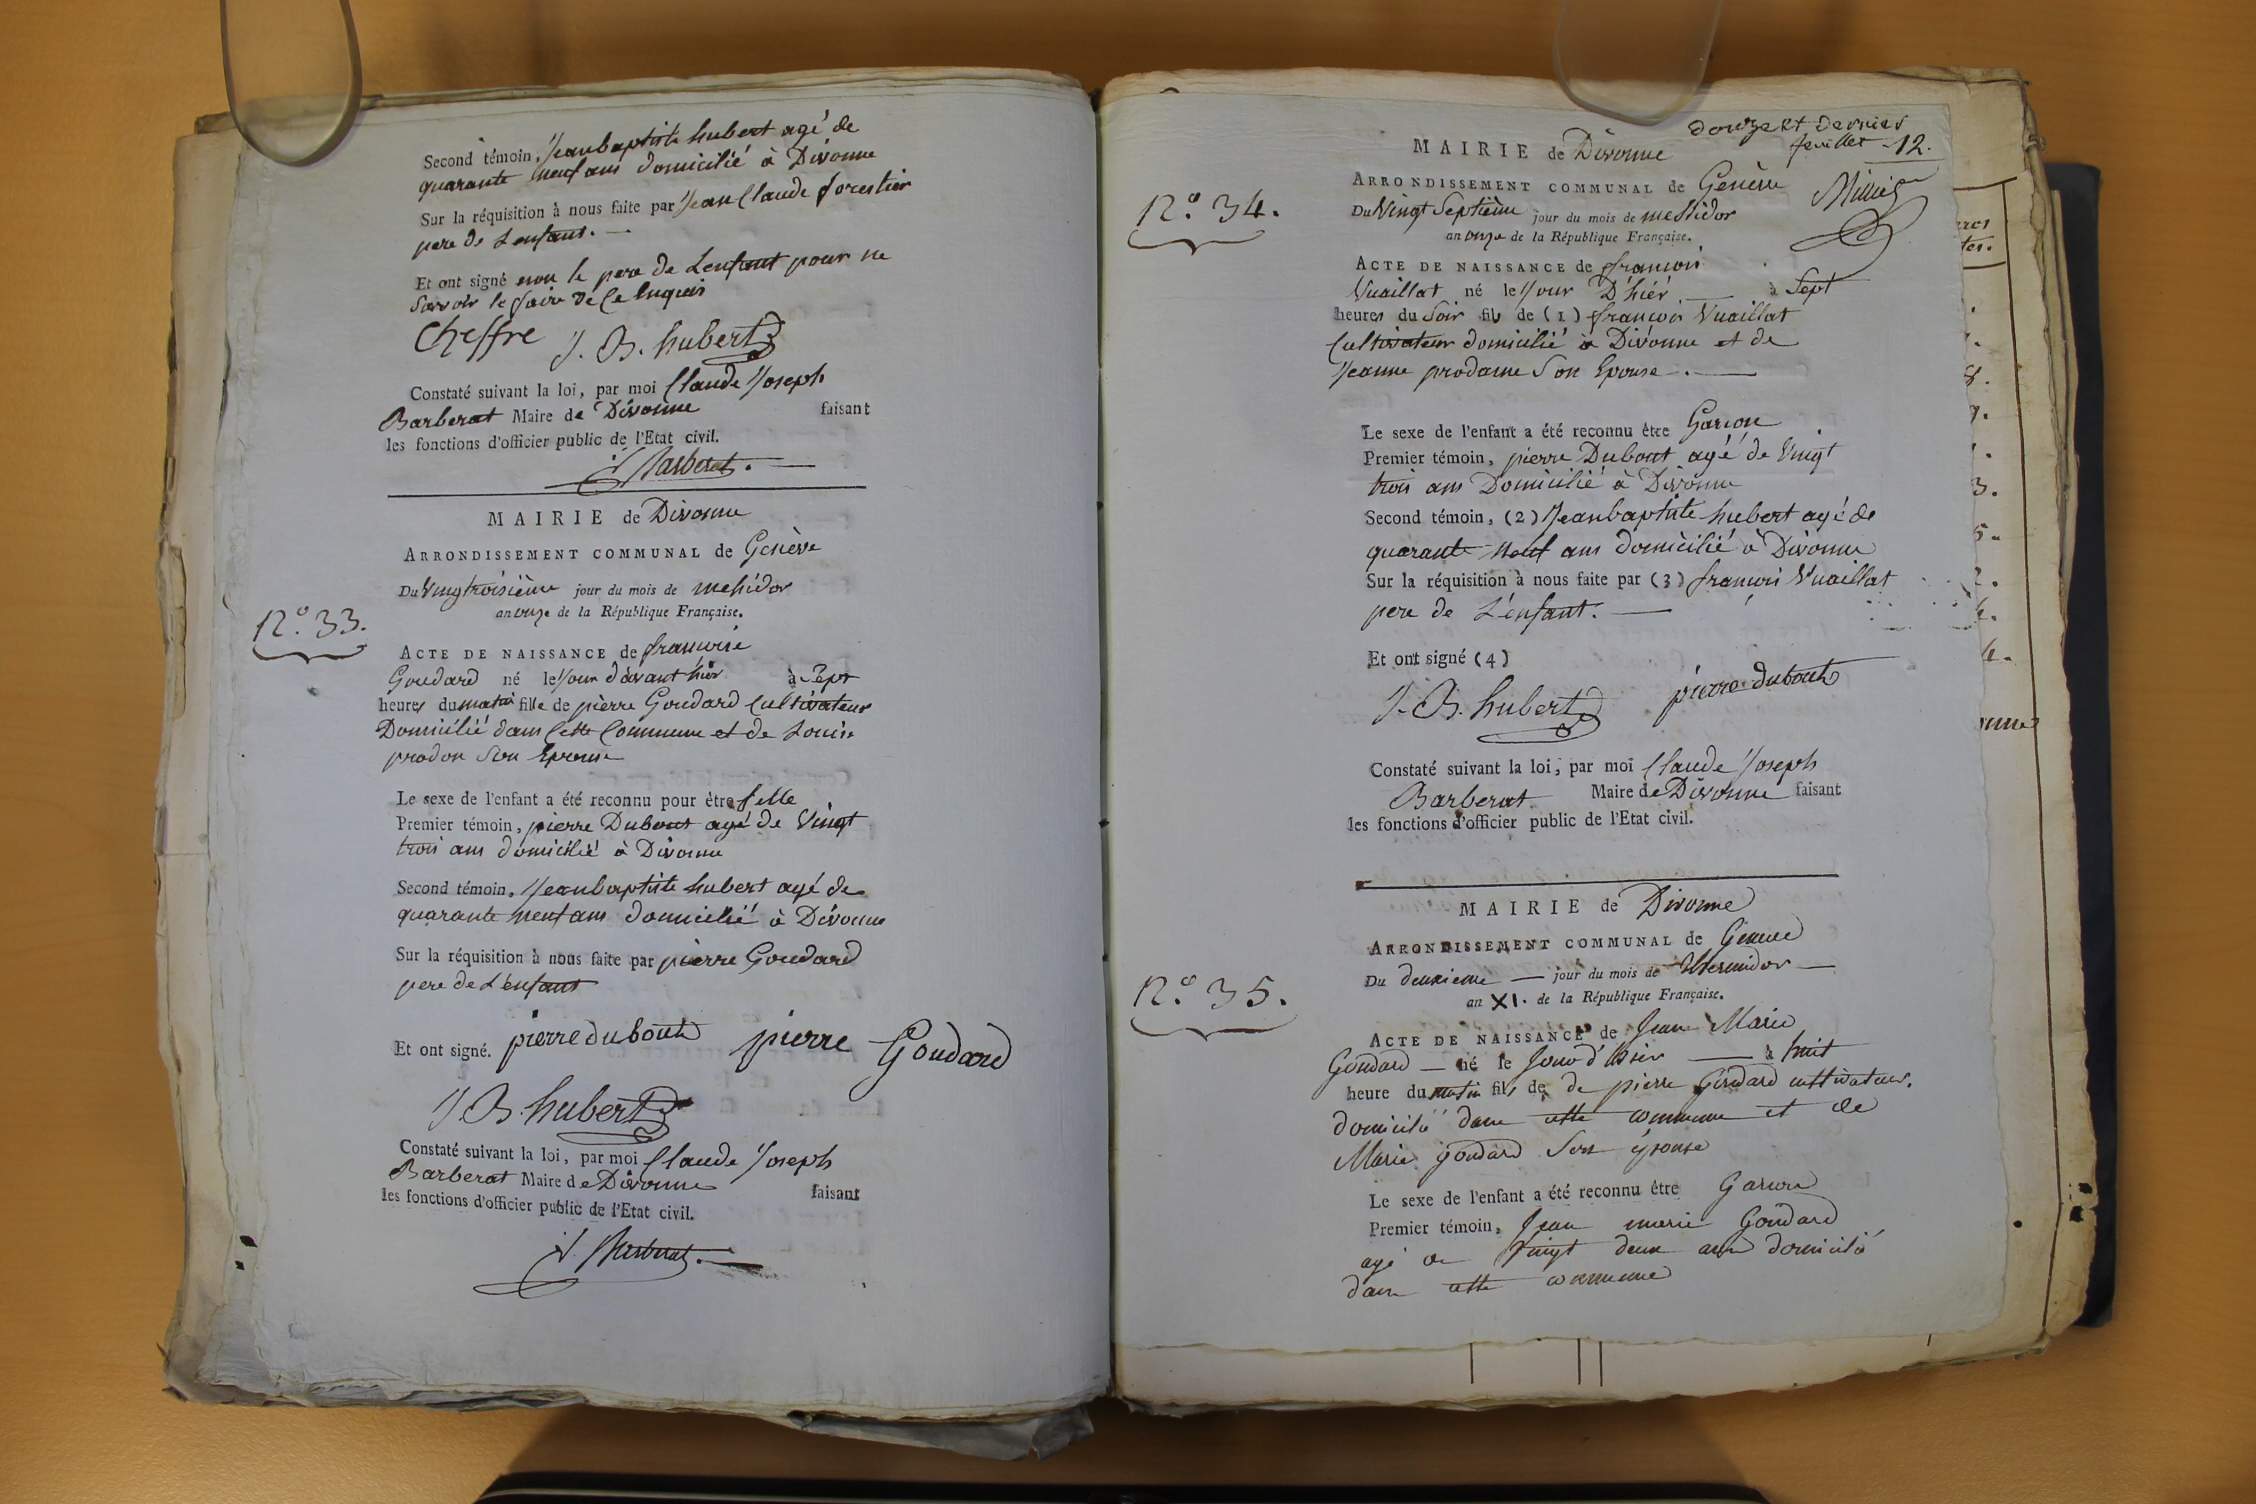 Second témoin, Jeanbaptiste hubert agé de
quarante neuf ans domicilié à Divonne
Sur la réquisition à nous faite par Jean Claude forestier
pere de Lenfant. —
Et ont signé non le pere de Lenfant pour ne
Savoir le faire de ce Enquis
Cheffre J. B. hubert
Constaté suivant la loi, par moi Claude Joseph
Barberat Maire de Divonne faisant
les fonctions d'officier public de l'Etat civil.
Barberat. —
MAIRIE de Divonne
ARRONDISSEMENT COMMUNAL de Genève
Du Vingtroisième jour du mois de mesidor
an onze de la République Française.
N.º 33.
ACTE DE NAISSANCE de francoise
Goudard né le Jour davant hier à Sept
heures du matin fille de pièrre Goudard Cultivateur
Domicilié dans Cette Commune et de Louise
prodon Son Epouse
Le sexe de l'enfant a été reconnu pour être fille
Premier témoin, pierre Dubout agé de Vingt
trois ans domicilié à Divonne
Second témoin, Jeanbaptiste hubert agé de
quarante neuf ans domicilié à Divonne
Sur la réquisition à nous faite par pierre Goudard
pere de L'enfant
Et ont signé. pierre dubouth pierre Goudard
J. B. hubert
Constaté suivant la loi, par moi Claude Joseph
Barberat Maire de Divonne faisant
les fonctions d'officier public de l'Etat civil.
Barberat. —
douze et dernier
feuillet 12.
MAIRIE de Divonne
N.º 34.
ARRONDISSEMENT COMMUNAL de Genève
Du Vingt Septième jour du mois de messidor
an onze de la République Française.
ACTE DE NAISSANCE de francois
Vuaillat né le Jour D'hiér — à Sept
heures du Soir fils de (1) francois Vuaillat
Cultivateur domicilié à Divonne et de
Jeanne prodame Son Epouse. —
Le sexe de l'enfant a été reconnu être Garcon
Premier témoin, pierre Dubout agé de Vingt
trois ans Domicilié à Divonne
Second témoin, (2) Jeanbaptiste hubert agé de
quarante neuf ans domicilié à Divonne
Sur la réquisition à nous faite par (3) francois Vuaillat
pere de L'enfant. —
Et ont signé (4)
J. B. hubert pierre dubouth
Constaté suivant la loi, par moi Claude Joseph
Barberat Maire de Divonne faisant
les fonctions d'officier public de l'Etat civil.
MAIRIE de Divonne
ARRONDISSEMENT COMMUNAL de Geneve
Du deuxieme — jour du mois de thermidor —
an XI. de la République Française.
N.º 35.
ACTE DE NAISSANCE de Jean Marie
Goudard — né le Jour d'hier — à huit
heure du matin fils de de pierre Goudard cultivateur.
domicilié dans cette commune et de
Marie Goudard Son épouse
Le sexe de l'enfant a été reconnu être Garcon
Premier témoin, Jean marie Goudard
agé de Vingt deux ans domicilié
dans cette commune